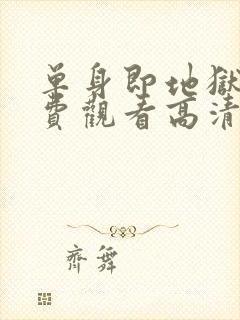 单身即地獄
費觀看高清
齊舞